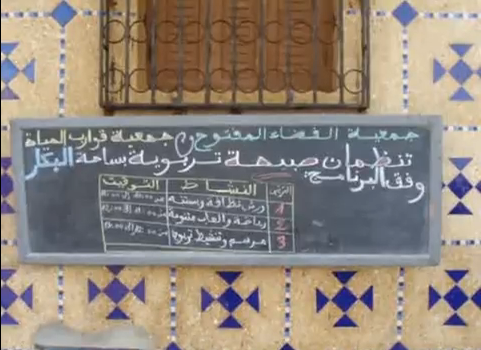 جمعية الفضاء المفتوح و جمعية قوارب الحياة
تنظمان صبحة تربوية بساحة البكار
وفق البرنامج:
النشاط التوقيت
1 ورش نظافة وبستنة
2 رياضة وألعاب متنوعة
3 مرسم وتنشيط تربوي